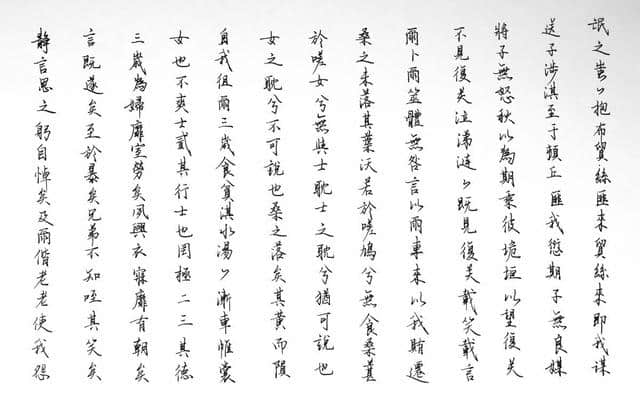 氓之蚩〻抱布貿絲匪來貿絲來即我謀
送子涉淇至于頓丘匪我愆期子無良媒
將子無怒秋以為期乘彼垝垣以望復关
不見復关泣涕漣〻既見復关載笑載言
爾卜爾筮體無咎言以爾車來以我賄遷
桑之未落其葉沃若於嗟鳩兮無食桑葚
於嗟女兮無與士耽士之耽兮猶可說也
女之耽兮不可說也桑之落矣其黃而隕
自我徂爾三歲食貧淇水湯〻漸車帷裳
女也不爽士貳其行士也罔極二三其德
三歲為婦靡室勞矣夙興夜寐靡有朝矣
言既遂矣至於暴矣兄弟不知咥其笑矣
靜言思之躬自悼矣及爾偕老老使我怨